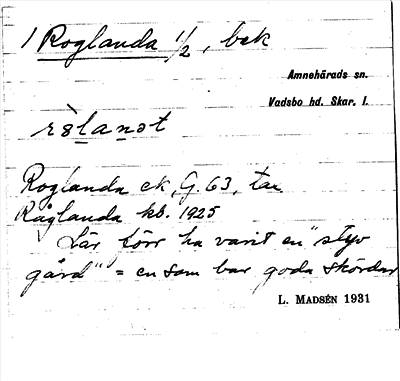 1 Roglanda 1/2, bek
Amnehärads sn.
Vadsbo hd. Skar. l.
Roglanda ek, G. 63, tax
Råglanda kb. 1925
Lär förr ha varit en "styv
gård" = en som bar goda skördar
L. MADSÉN 1931